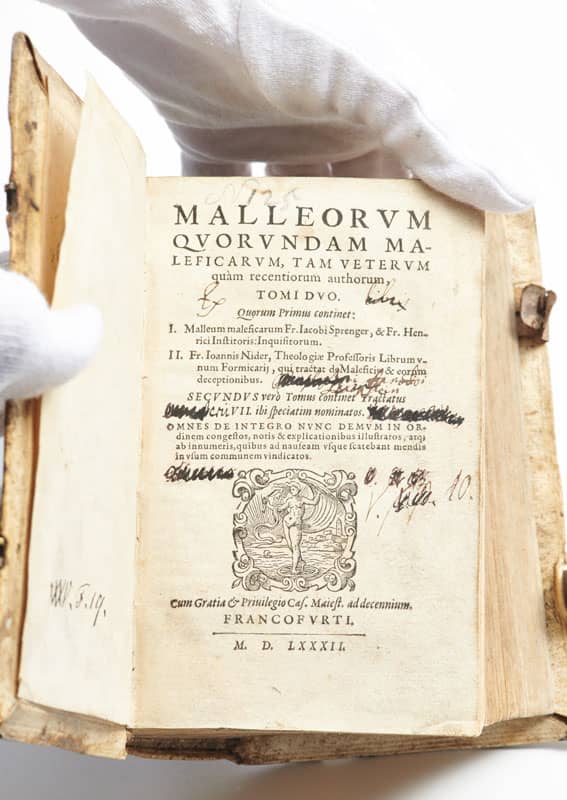 MALLEORVM
QVORVNDAM MA-
LEFICARVM, TAM VETERVM
quàm recentiorum authorum,
TOMI DVO.
Ex libris
Quorum Primus continet:
I. Malleum maleficarum Fr. Iacobi Sprenger, & Fr. Hen-
rici Institoris: Inquisitorum.
II. Fr. Ioannis Nider, Theologiæ Professoris Librum v-
num Formicarij, qui tractat de Maleficis & eorum
deceptionibus.
SECVNDVS verò Tomus continet Tractatus
VII. ibi speciatim nominatos.
OMNES DE INTEGRO NVNC DEMVM IN OR-
dinem congestos, notis & explicationibus illustratos, atq;
ab innumeris, quibus ad nauseam vsque scatebant mendis
in vsum communem vindicatos.
10.
Cum Gratia & Priuilegio Cæs. Maiest. ad decennium.
FRANCOFVRTI,
M. D. LXXXII.